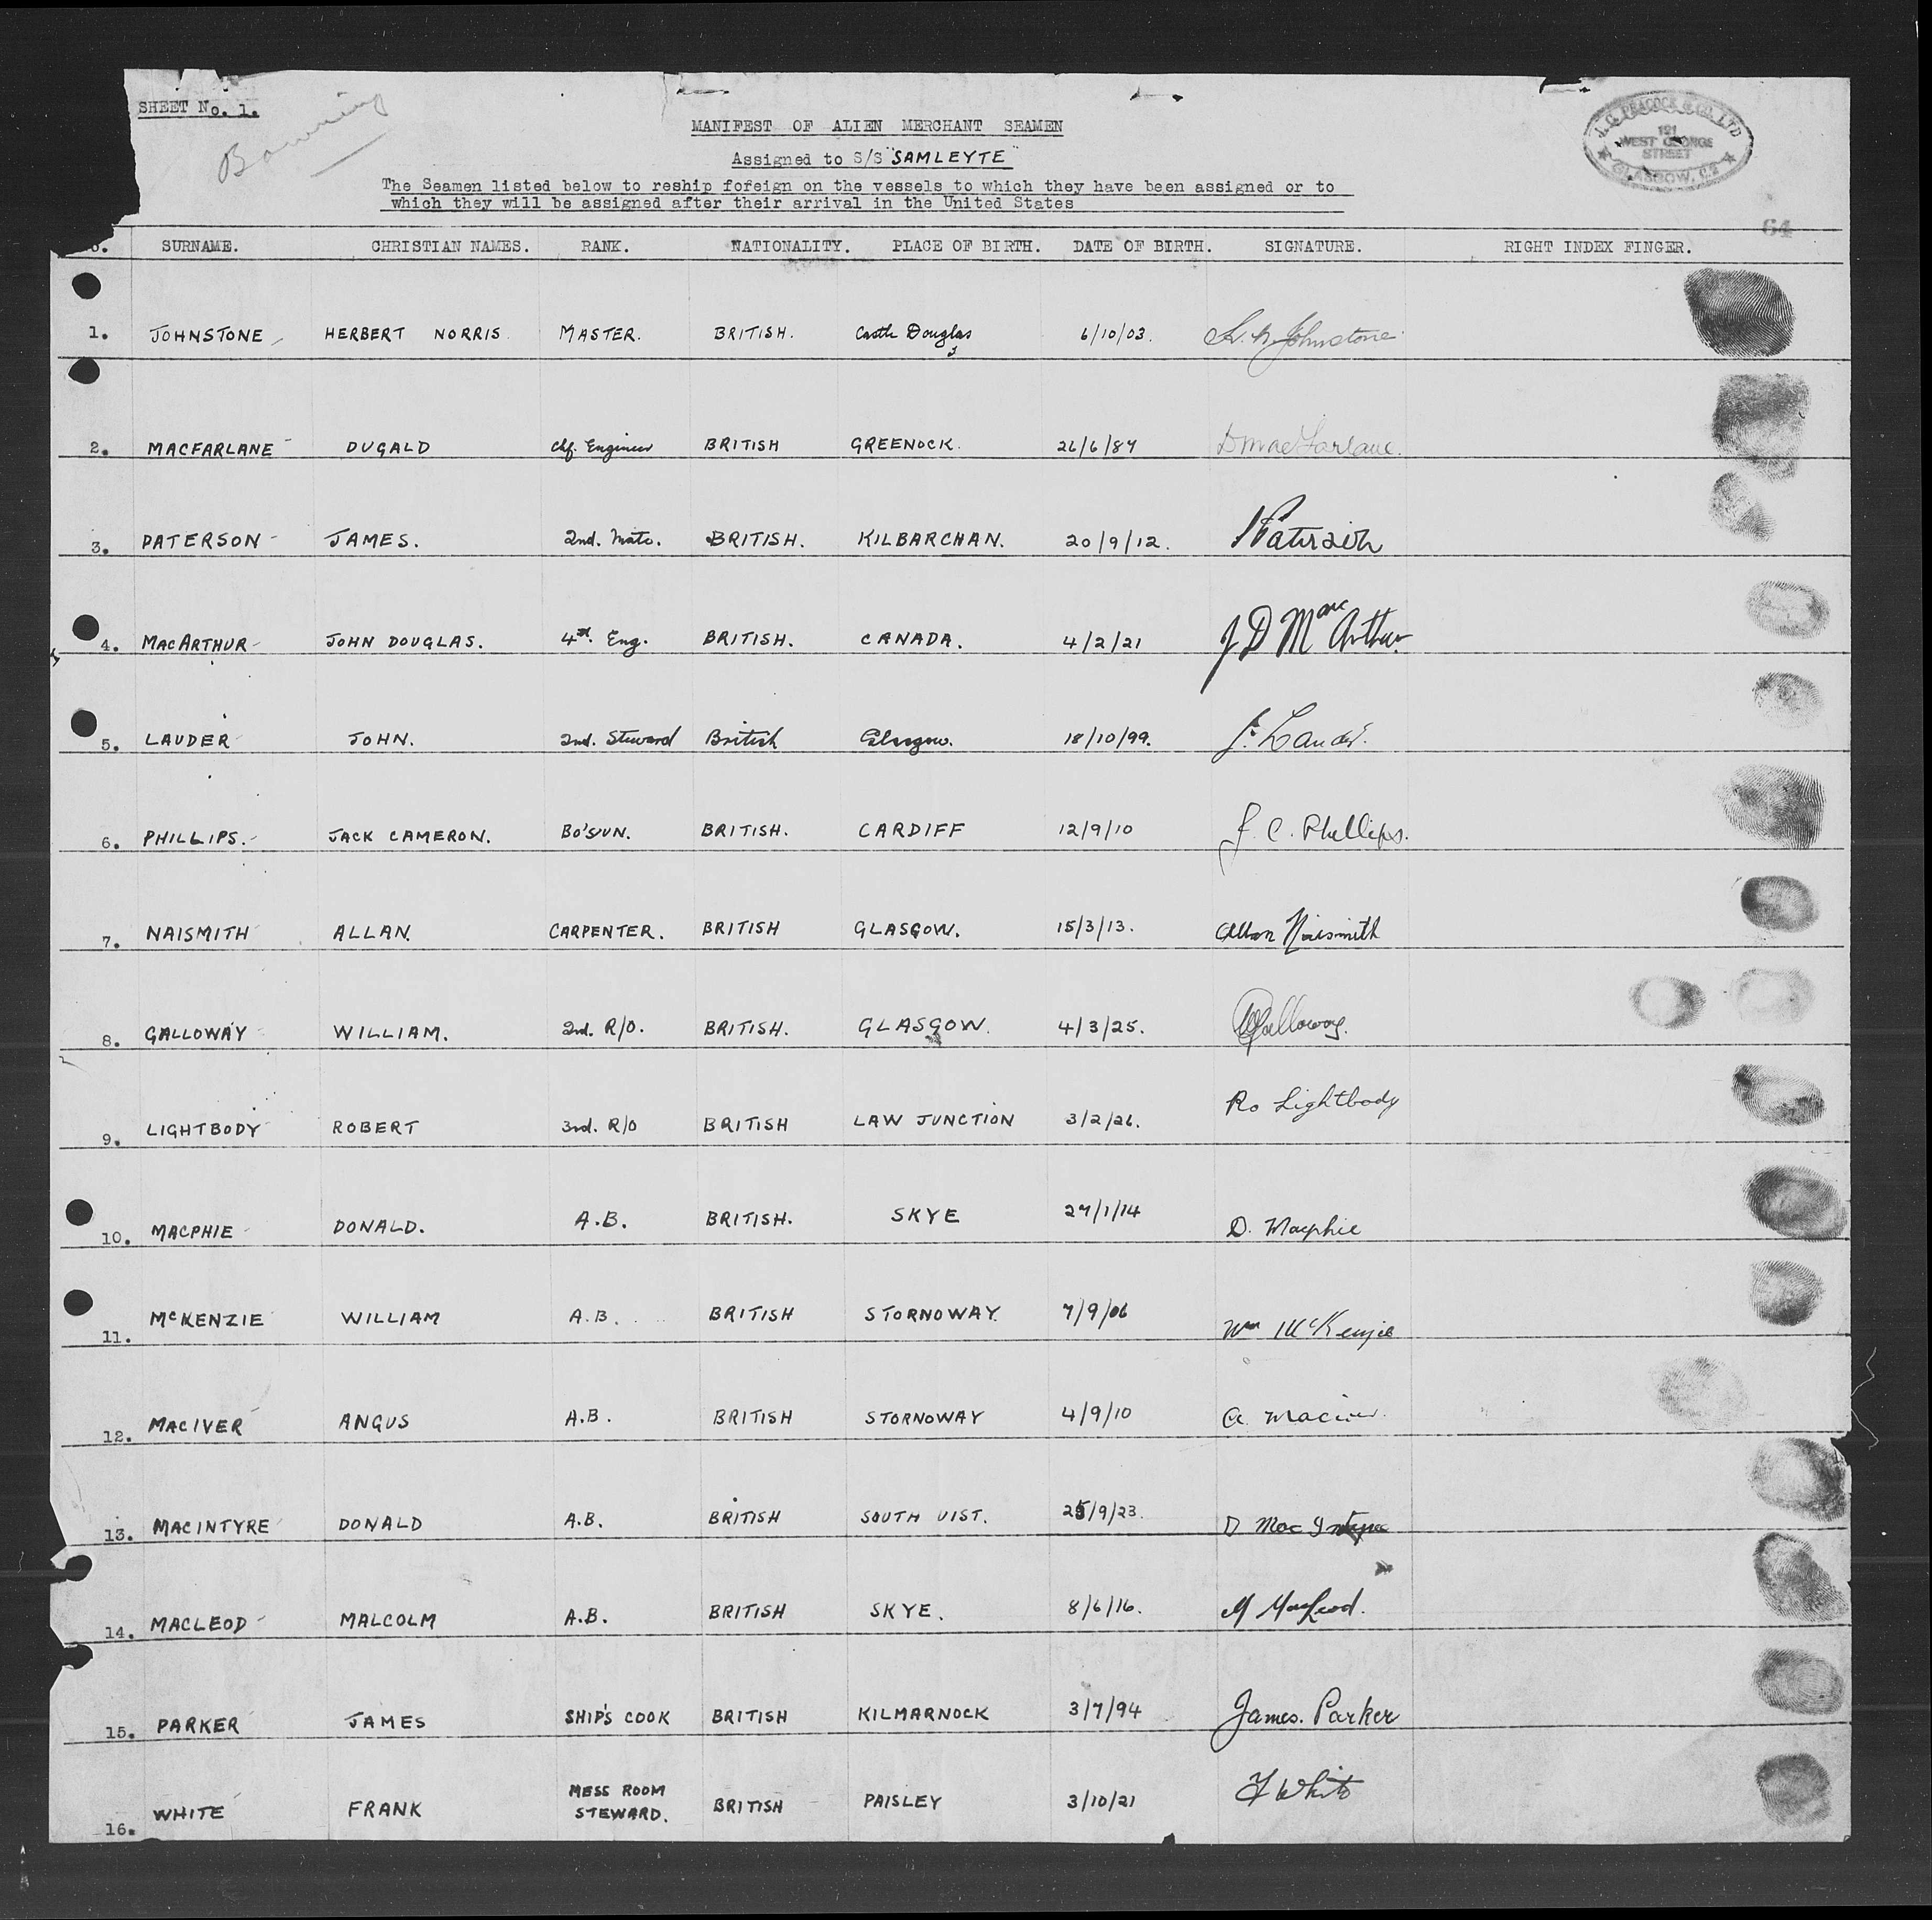 SHEET No. 1.
MANIFEST OF ALIEN MERCHANT SEAMEN
Assigned to S/S "SAMLEYTE"
The Seamen listed below to reship foreign on the vessels to which they have been assigned or to
which they will be assigned after their arrival in the United States
J. C. PEACOCK & CO. LTD
121
WEST GEORGE
STREET
GLASGOW, C.2
64
SURNAME. CHRISTIAN NAMES. RANK. NATIONALITY. PLACE OF BIRTH. DATE OF BIRTH. SIGNATURE. RIGHT INDEX FINGER.
1. JOHNSTONE HERBERT NORRIS MASTER. BRITISH. Castle Douglas 6/10/03. H. N. Johnstone
2. MACFARLANE DUGALD Chf. Engineer BRITISH GREENOCK. 26/6/87 D MacFarlane.
3. PATERSON JAMES. 2nd. Mate. BRITISH. KILBARCHAN. 20/9/12. J Paterson
4. MACARTHUR JOHN DOUGLAS. 4th. Eng. BRITISH. CANADA. 4/2/21 J D MacArthur.
5. LAUDER JOHN. 2nd. Steward British Glasgow. 18/10/99. J. Lauder.
6. PHILLIPS. JACK CAMERON. BO'SUN. BRITISH. CARDIFF 12/9/10 J. C. Phillips.
7. NAISMITH ALLAN. CARPENTER. BRITISH GLASGOW. 15/3/13. Allan Naismith
8. GALLOWAY WILLIAM. 2nd. R/O. BRITISH. GLASGOW. 4/3/25. W Galloway.
9. LIGHTBODY ROBERT 3rd. R/O BRITISH LAW JUNCTION 3/2/26. Ro Lightbody
10. MACPHIE DONALD. A.B. BRITISH. SKYE 27/1/14 D. Macphie
11. McKENZIE WILLIAM A.B. BRITISH STORNOWAY. 7/9/06 Wm McKenzie
12. MACIVER ANGUS A.B. BRITISH STORNOWAY 4/9/10 A. Maciver.
13. MACINTYRE DONALD A.B. BRITISH SOUTH UIST. 25/9/23. D MacIntyre
14. MACLEOD MALCOLM A.B. BRITISH SKYE. 8/6/16. M MacLeod.
15. PARKER JAMES SHIP'S COOK BRITISH KILMARNOCK 3/7/94 James. Parker
16. WHITE FRANK MESS ROOM STEWARD. BRITISH PAISLEY 3/10/21 F White